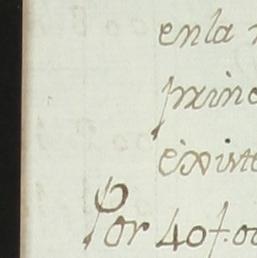 en la
princ
existe
Por 40f.00